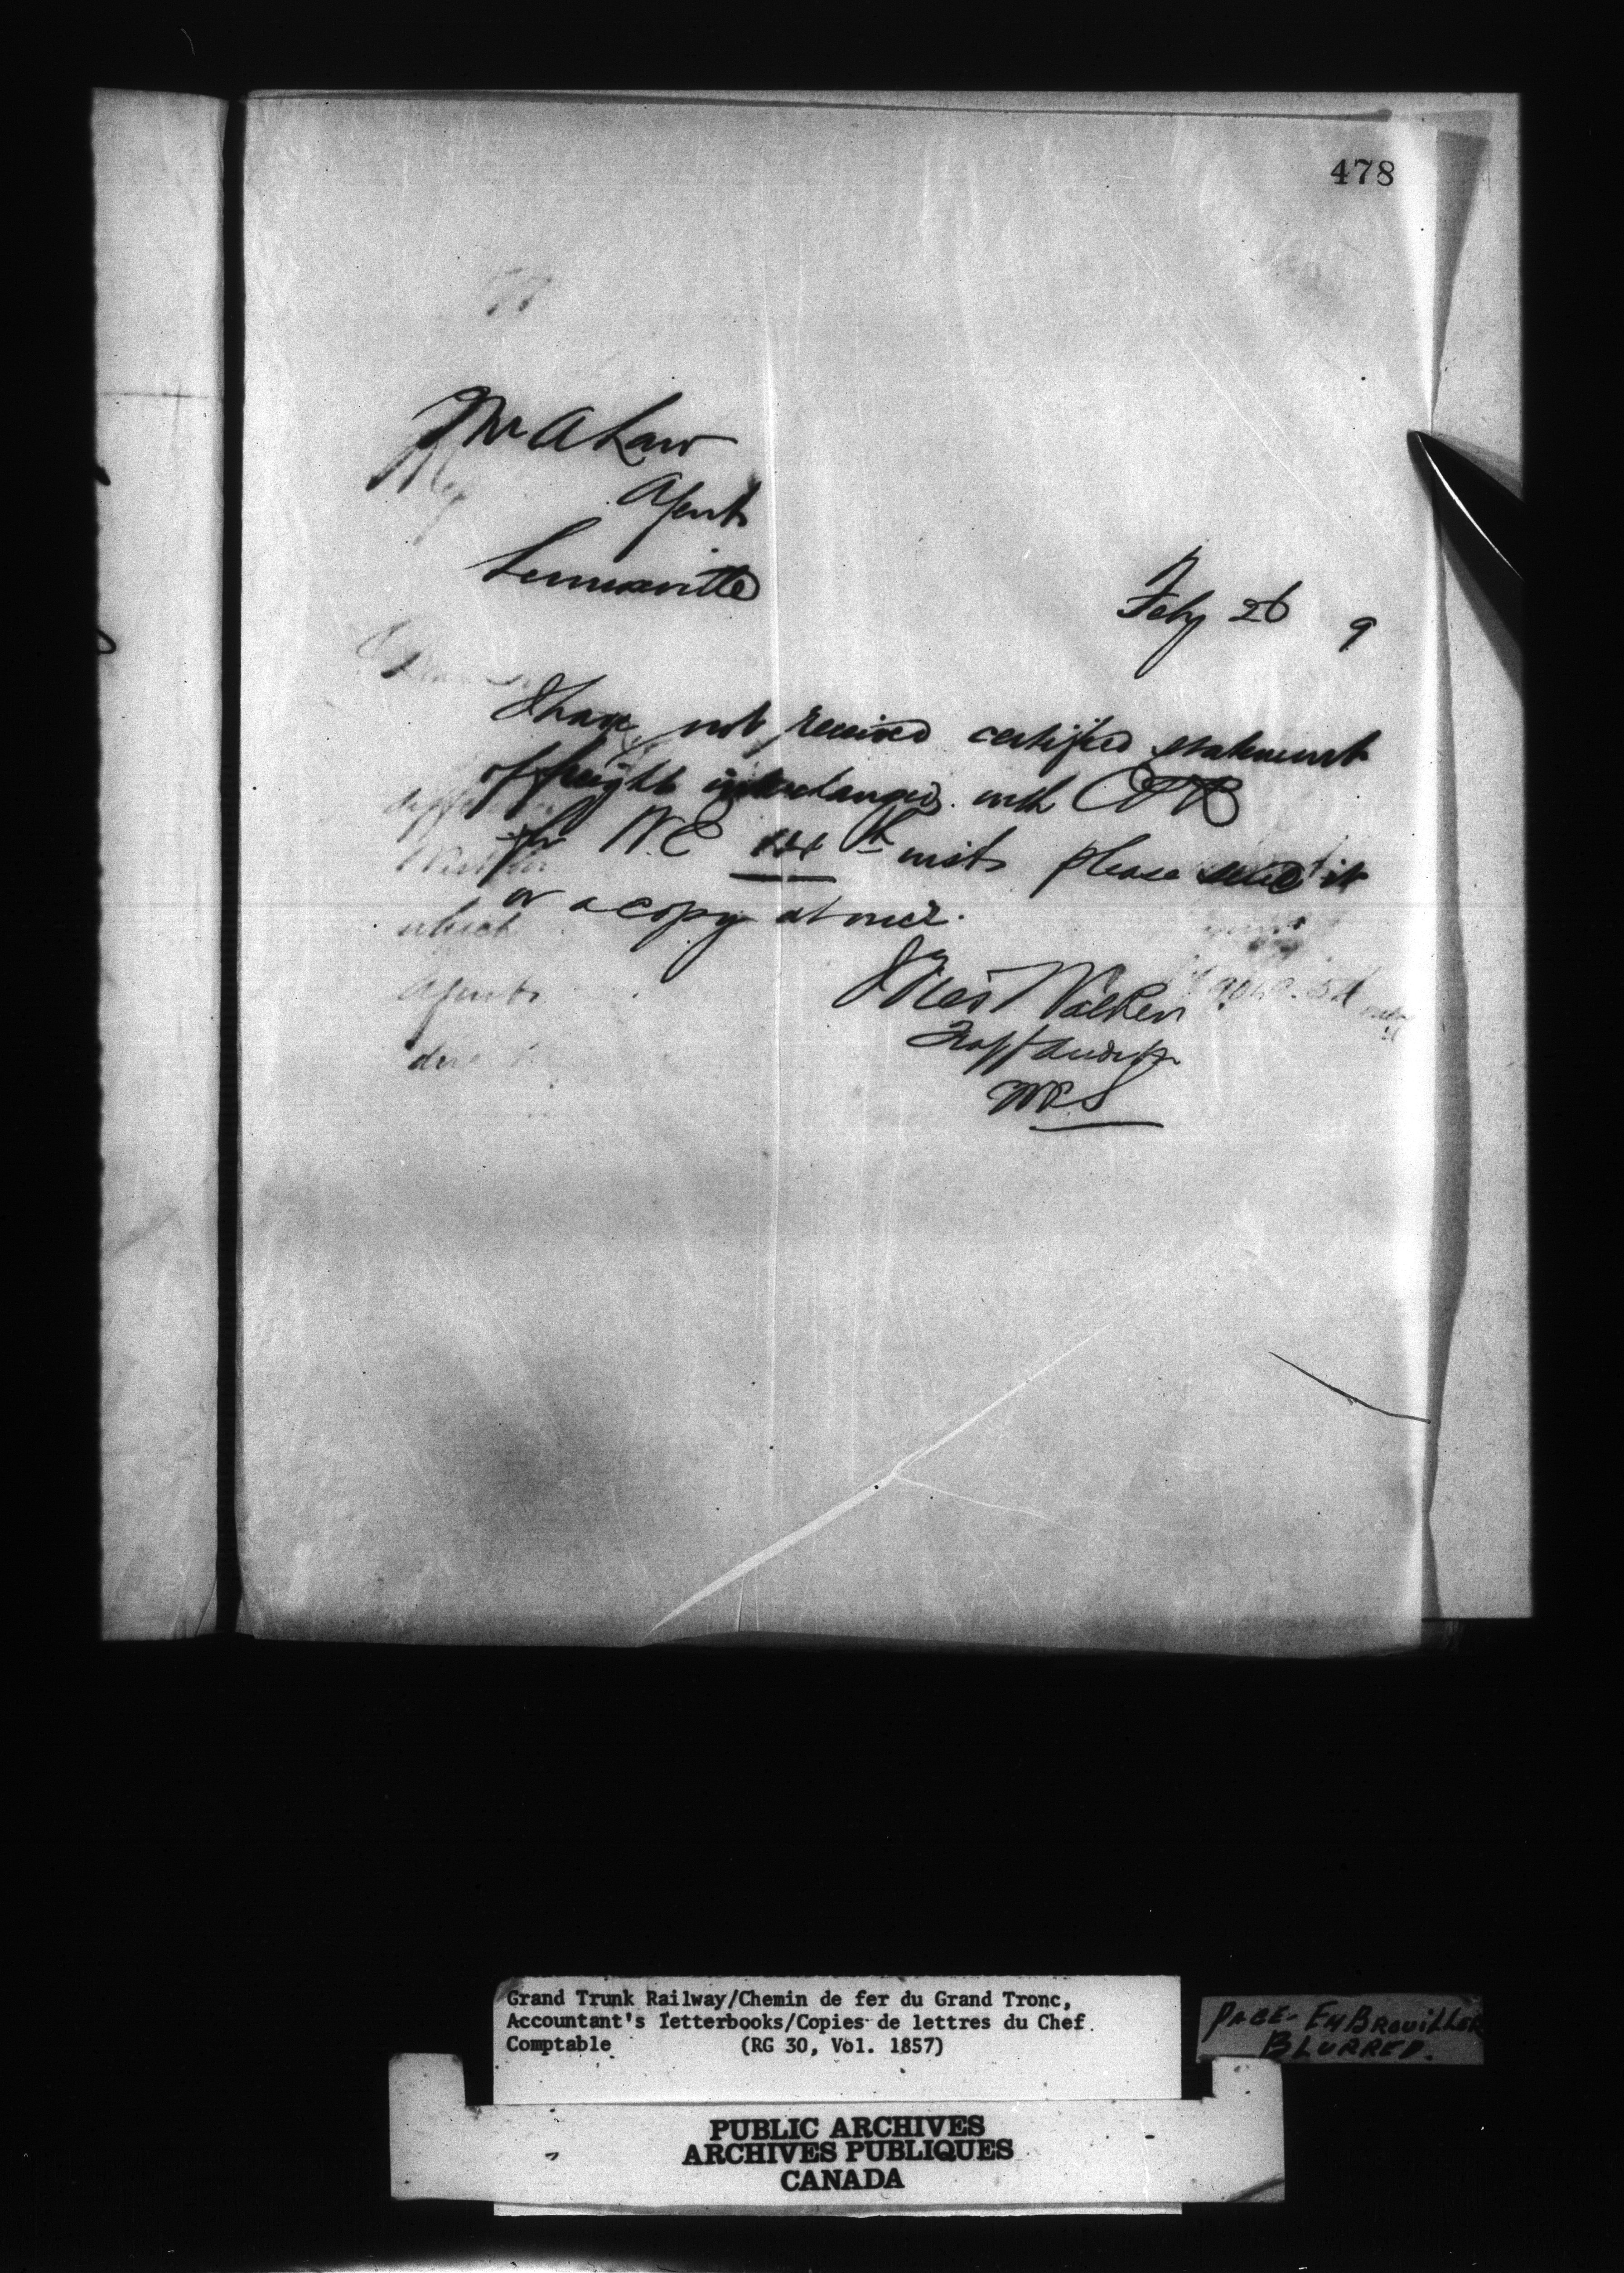 478
Mr A Law
Agent
Lennoxville
Feby 26 9
I have not received certified statement
of freight interchanged with CPR
for W.E 14th inst please send it
or a copy at once.
Walker
Traff Auditor
which
Agent
due
Grand Trunk Railway/Chemin de fer du Grand Tronc,
Accountant's letterbooks/Copies de lettres du Chef
Comptable (RG 30, Vol. 1857)
PAGE- EMBROUILLER
BLURRED.
PUBLIC ARCHIVES
ARCHIVES PUBLIQUES
CANADA